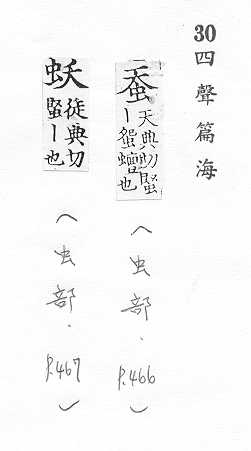 30 四聲篇海
蚕 天典切螼
丨䖤蟺也
（虫部．p.466）
蚨 徒典切
螼丨也
（虫部．p.467）